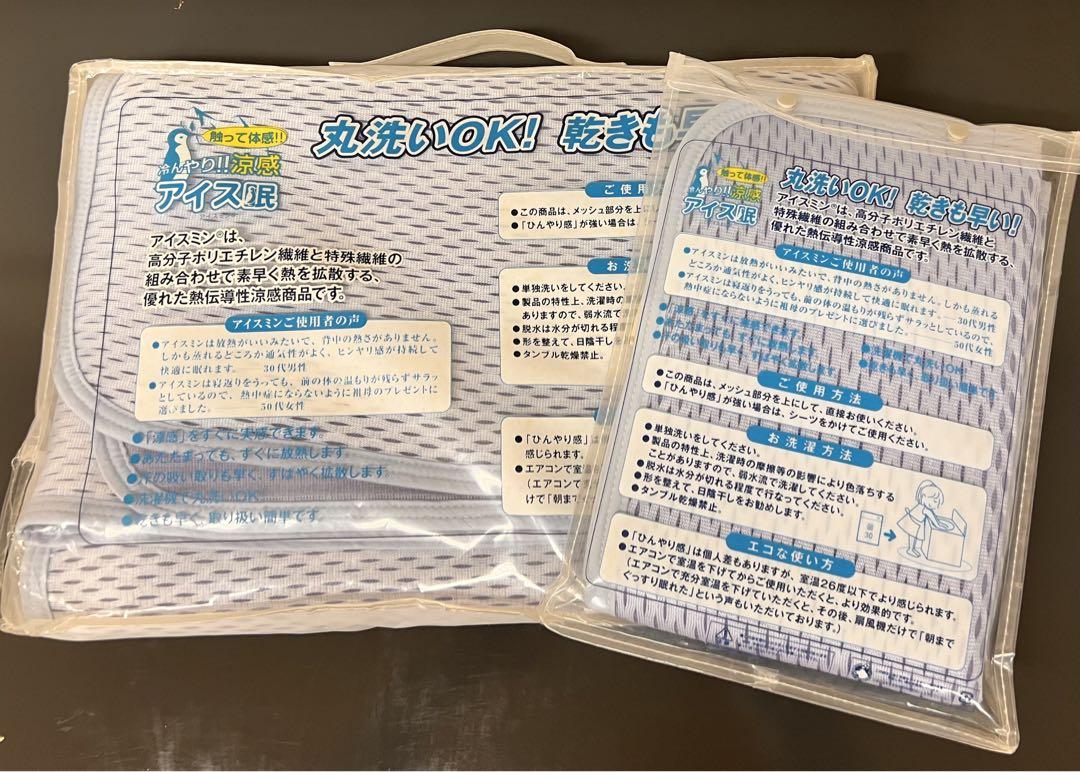 触って体感!!
冷んやり!!涼感
アイス眠
丸洗いOK! 乾きも早
アイスミン®は、
高分子ポリエチレン繊維と特殊繊維の
組み合わせで素早く熱を拡散する、
優れた熱伝導性涼感商品です。
アイスミンご使用者の声
●アイスミンは放熱がいいみたいで、背中の熱さがありません。
しかも蒸れるどころか通気性がよく、ヒンヤリ感が持続して
快適に眠れます。――30代男性
●アイスミンは寝返りをうっても、前の体の温もりが残らずサラッ
としているので、熱中症にならないように祖母のプレゼントに
選びました。――50代女性
●「涼感」をすぐに実感できます。
●あたたまっても、すぐに放熱します。
●汗の吸い取りも早く、すばやく拡散します。
●洗濯機で丸洗いOK
●乾きも早く、取り扱い簡単です。
ご使用
●この商品は、メッシュ部分を上に
●「ひんやり感」が強い場合は
お洗
●単独洗いをしてください。
●製品の特性上、洗濯時の
ありますので、弱水流で
●脱水は水分が切れる程
●形を整えて、日陰干し
●タンブル乾燥禁止。
●「ひんやり感」は
感じられます。
●エアコンで室温
(エアコンで
けで「朝ま
触って体感!!
冷んやり!!涼感
アイス眠
丸洗いOK! 乾きも早い!
アイスミン®は、高分子ポリエチレン繊維と
特殊繊維の組み合わせで素早く熱を拡散する、
優れた熱伝導性涼感商品です。
アイスミンご使用者の声
●アイスミンは放熱がいいみたいで、背中の熱さがありません。しかも蒸れる
どころか通気性がよく、ヒンヤリ感が持続して快適に眠れます。――30代男性
●アイスミンは寝返りをうっても、前の体の温もりが残らずサラッとしているので、
熱中症にならないように祖母のプレゼントに選びました。――50代女性
ご使用方法
●この商品は、メッシュ部分を上にして、直接お使いください。
●「ひんやり感」が強い場合は、シーツをかけてご使用ください。
お洗濯方法
●単独洗いをしてください。
●製品の特性上、洗濯時の摩擦等の影響により色落ちする
ことがありますので、弱水流で洗濯してください。
●脱水は水分が切れる程度で行なってください。
●形を整えて、日陰干しをお勧めします。
●タンブル乾燥禁止。
弱
30
エコな使い方
●「ひんやり感」は個人差もありますが、室温26度以下でより感じられます。
●エアコンで室温を下げてからご使用いただくと、より効果的です。
(エアコンで充分室温を下げていただくと、その後、扇風機だけで「朝まで
ぐっすり眠れた」という声もいただいております。)